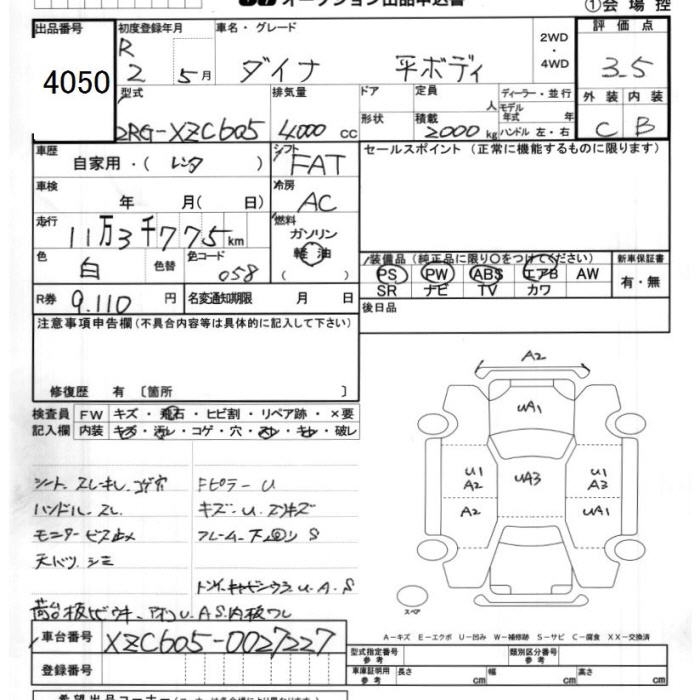 オークション出品申込書
①会場控
出品番号
4050
初度登録年月
R
2 5月
車名・グレード
ダイナ 平ボディ
2WD
・
4WD
評価点
3.5
外装 内装
C B
型式
2RG-XZC605
排気量
4000 cc
ドア
形状
定員
人
積載
2000kg
ディーラー・並行
モデル
年式 年
ハンドル 左・右
車歴
自家用・( レンタ )
シフト
FAT
セールスポイント(正常に機能するものに限ります)
車検
年 月( 日)
冷房
AC
走行
11万3千775km
燃料
ガソリン
軽油
( )
色
白
色替
色コード
058
装備品(純正品に限り○をつけてください)
PS PW ABS エアB AW
SR ナビ TV カワ
新車保証書
有・無
R券 9.110 円
名変通知期限 月 日
後日品
注意事項申告欄(不具合内容等は具体的に記入して下さい)
修復歴 有 〔箇所 〕
検査員
記入欄
FW キズ・飛石・ヒビ割・リペア跡・×要
内装 キズ・汚レ・コゲ・穴・スレ・キレ・破レ
シート スレキレ コゲ穴
ハンドル スレ
モニター ビス止メ
天バリ シミ
Fピラー U
キズ・U・スリキズ
フレーム 下回リ S
U.A.S
A2
UA1
U1
A2
UA3
U1
A3
A2
UA1
スペア
A-キズ E-エクボ U-凹み W-補修跡 S-サビ C-腐食 XX-交換済
車台番号 XZC605-0027227
登録番号
型式指定番号
参考
類別区分番号
参考
車庫証明用
参考
長さ cm
幅 cm
高さ cm
希望出品コーナー